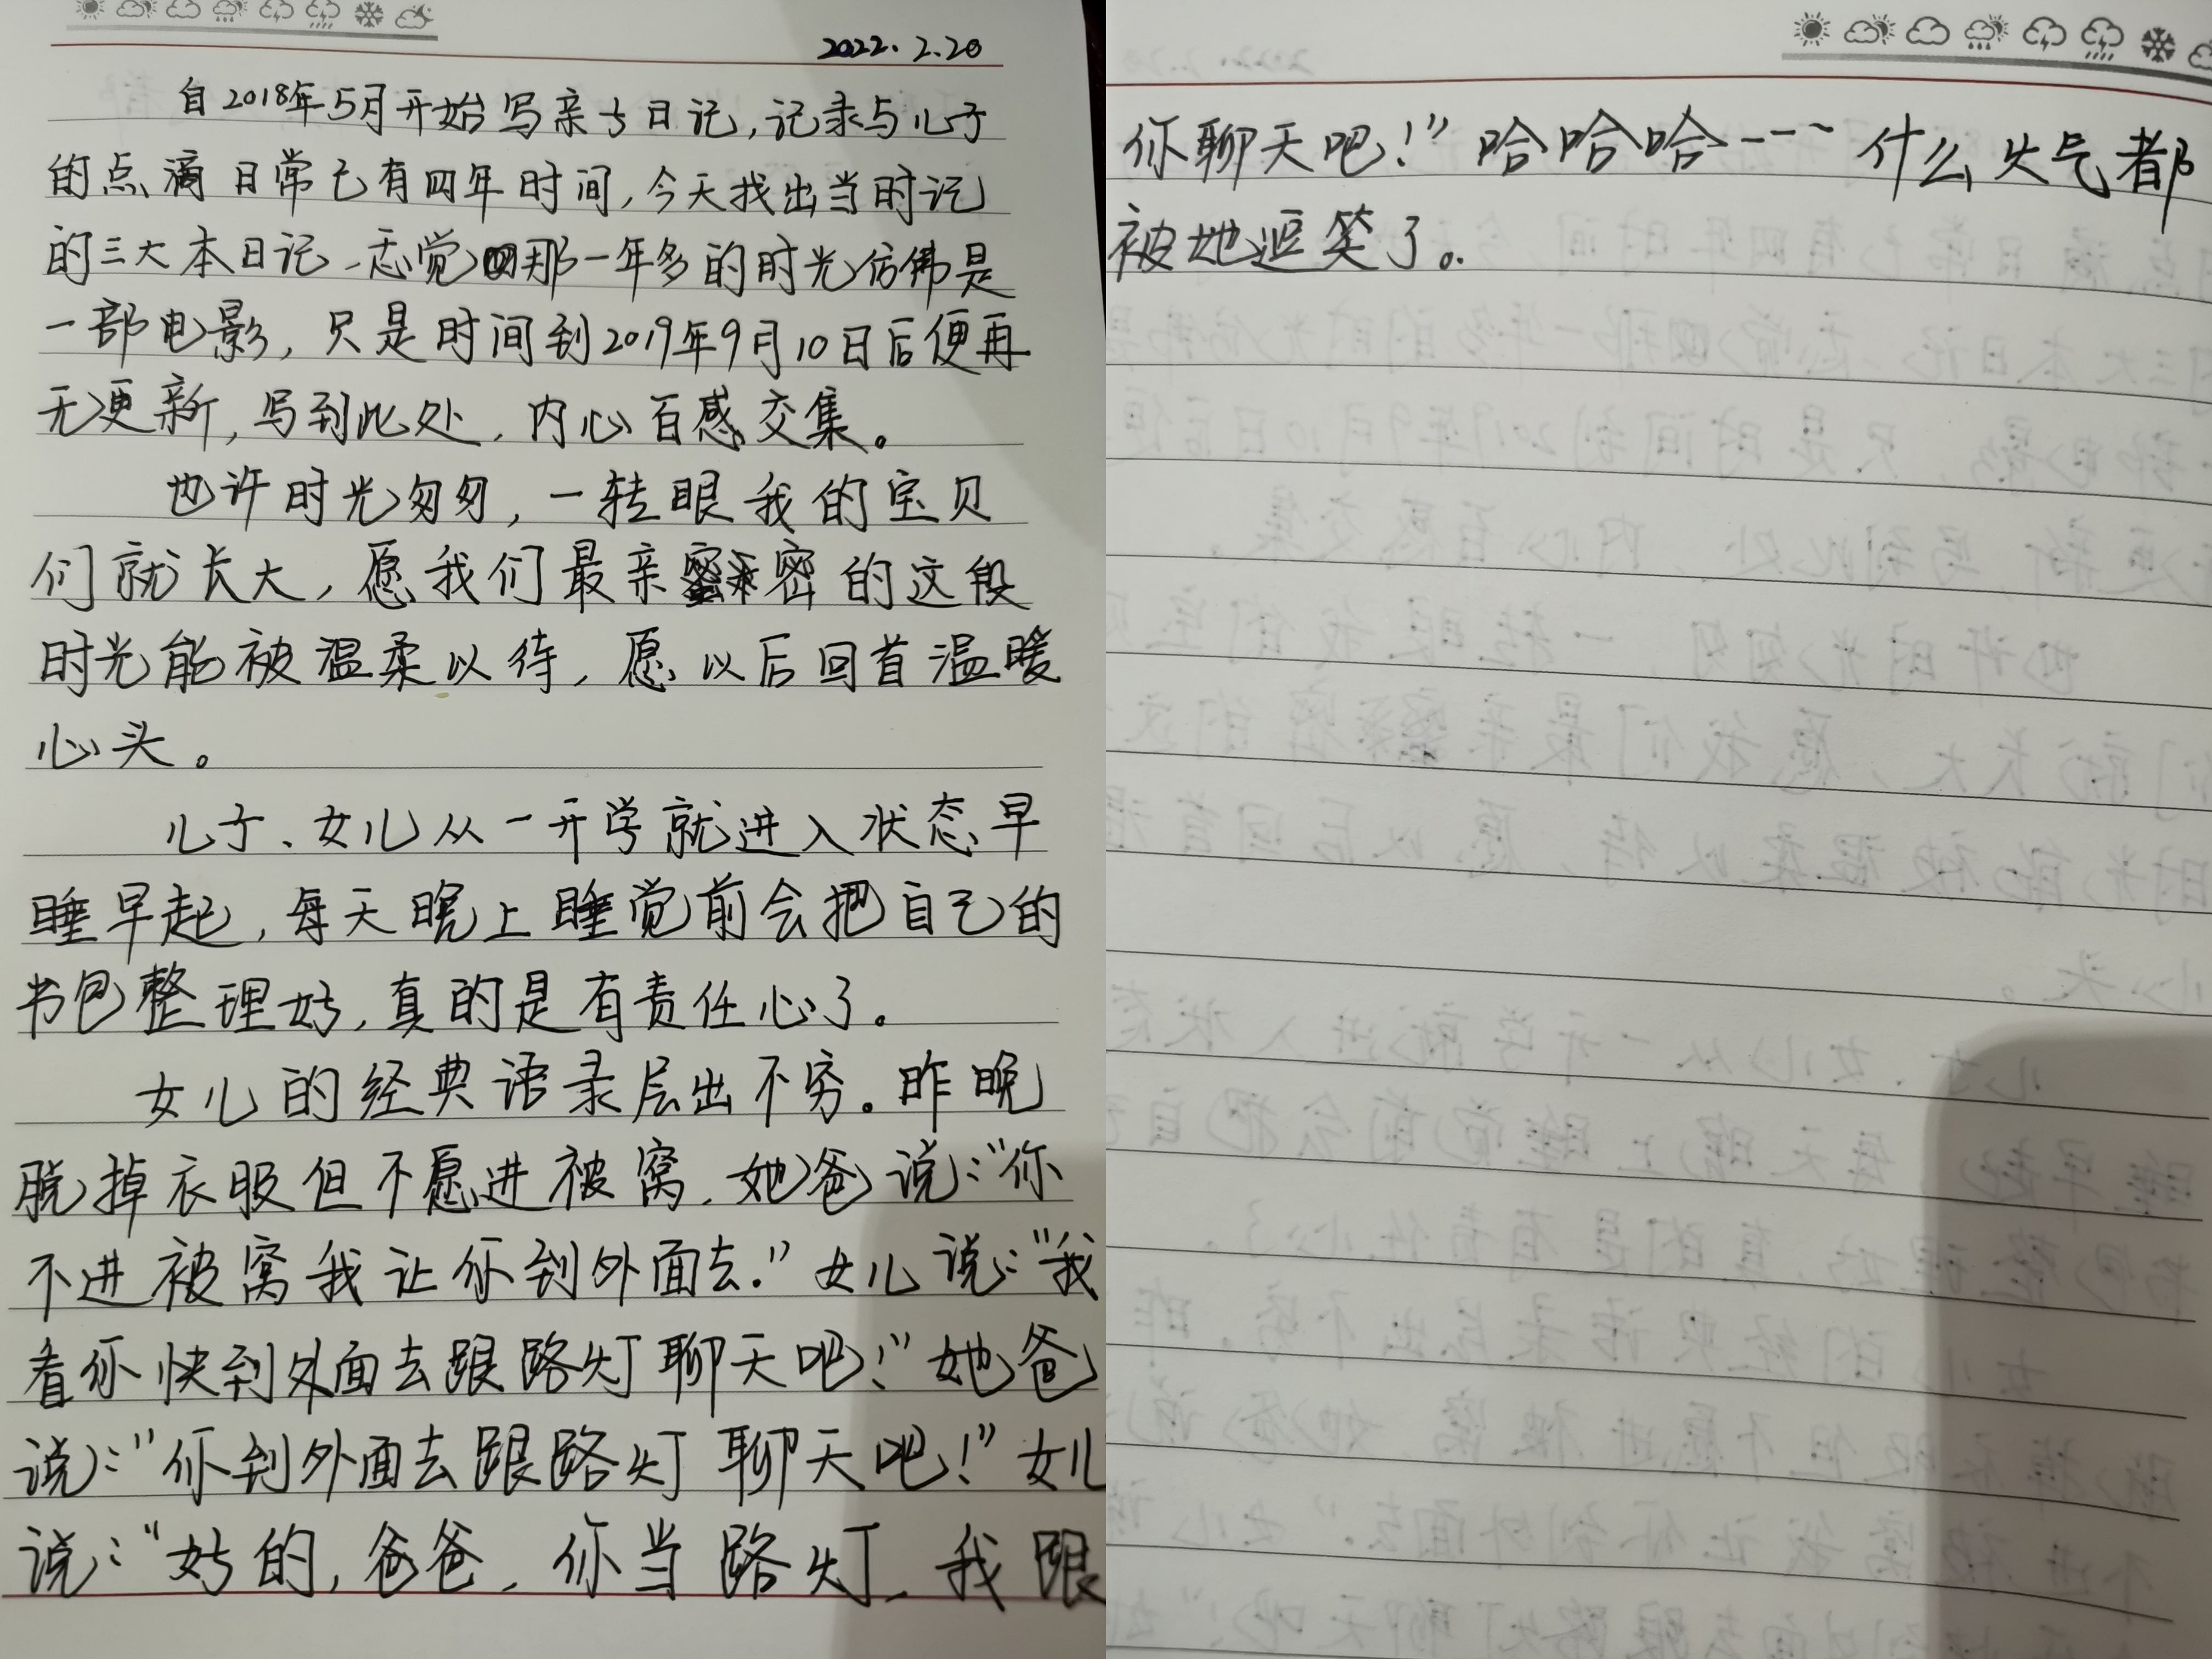 2022.2.20
自2018年5月开始写亲子日记,记录与儿子
的点滴日常已有四年时间,今天找出当时记
的三大本日记、忘觉那一年多的时光仿佛是
一部电影,只是时间到2019年9月10日后便再
无更新,写到此处,内心百感交集。
也许时光匆匆,一转眼我的宝贝
们就长大,愿我们最亲密的这段
时光能被温柔以待,愿以后回首温暖
心头。
儿子、女儿从一开学就进入状态早
睡早起,每天晚上睡觉前会把自己的
书包整理好,真的是有责任心了。
女儿的经典语录层出不穷。昨晚
脱掉衣服但不愿进被窝,她爸说:“你
不进被窝我让你到外面去.”女儿说:“我
看你快到外面去跟路灯聊天吧!”她爸
说:“你到外面去跟路灯聊天吧!”女儿
说:“好的,爸爸,你当路灯,我跟
你聊天吧!”哈哈哈---- 什么火气都
被她逗笑了。